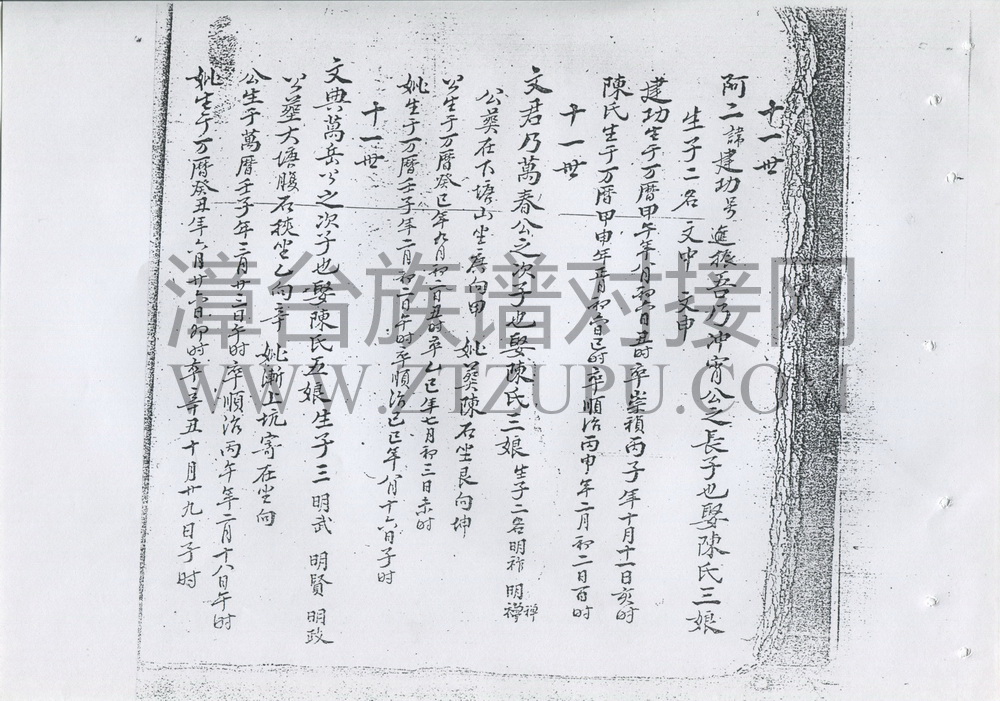 十一世
阿二諱建功号進振吾乃冲宵公之長子也娶陳氏三娘
生子二名 文中 文申
建功生于万曆甲午年八月初六日丑时卒崇禎丙子年十月十一日亥时
陳氏生于万曆甲申年正月初 日巳时卒順治丙申年二月初二日酉时
十一世
文君乃萬春公之次子也娶陳氏三娘 生子二名明祚 明禪 禅
公葵在下塘山坐庚向甲 妣葵陳石坐艮向坤
公生于万曆癸巳年九月初二日丑时卒乙巳年七月初三日未时
妣生于万曆壬子年二月初二日午时卒順治己巳年八月十六日子时
十一世
文典萬岳公之次子也娶陳氏五娘生子三 明武 明賢 明政
公葬大塘腹石挾坐乙向辛 妣漸上坑寄在坐向
公生于萬曆壬子年三月廿二日午时卒順治丙午年二月十八日午时
妣生于万曆癸丑年六月廿六日卯时卒辛丑十月廿九日子时
漳台族谱对接网
WWW.ZTZUPU.COM